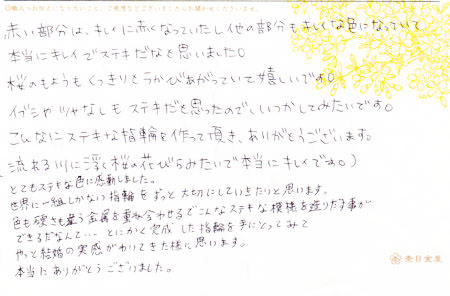 ◎職人へお伝えになりたいこと、ご感想などございましたらお聞かせくださいませ。
赤い部分は、キレイに赤くなっていたし他の部分もキレイな色になっていて
本当にキレイでステキだなと思いました。
桜のもようもくっきりとうかびあがっていて嬉しいです。
イブシやツヤなしもステキだと思ったので、いつかしてみたいです。
こんなにステキな指輪を作って頂き、ありがとうございます。
流れる川に浮く桜の花びらみたいで本当にキレイですね。)
とてもステキな色に感動しました。
世界に一組しかない指輪をずっと大切にしていきたいと思います。
色も硬さも違う金属を重ね合わせるでこんなステキな模様を造りだす事が
できるだなんて…とにかく完成した指輪を手にとってみて
やっと結婚の実感がわいてきた様に思います。
本当にありがとうございました。
杢目金屋